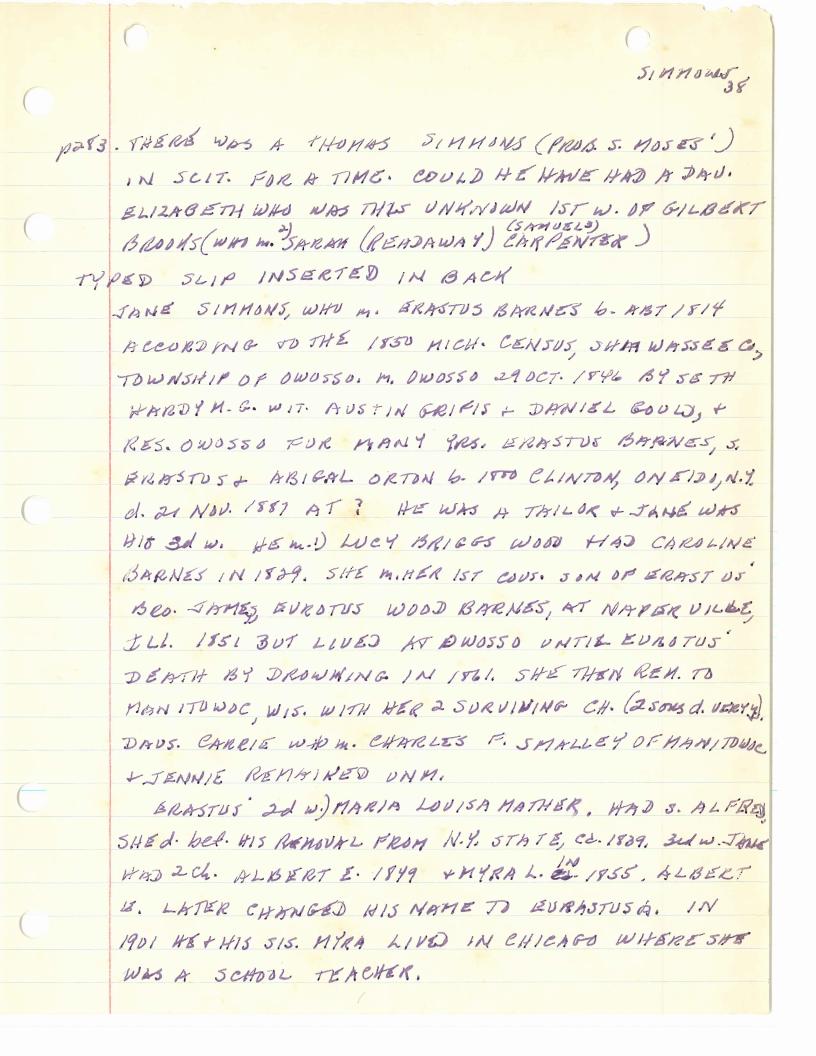 SIMMONS
38
p283. THERE WAS A THOMAS SIMMONS (PROB. S. MOSES')
IN SCIT. FOR A TIME. COULD HE HAVE HAD A DAU.
ELIZABETH WHO WAS THIS UNKNOWN 1ST W. OF GILBERT
(SAMUELS)
BROOKS (WHO m. 2) SARAH (READAWAY) CARPENTER)
TYPED SLIP INSERTED IN BACK
JANE SIMMONS, WHO m. ERASTUS BARNES b. ABT 1814
ACCORDING TO THE 1850 MICH. CENSUS, SHIAWASSEE Co,
TOWNSHIP OF OWOSSO. m. OWOSSO 29 OCT. 1846 BY SETH
HARDY M.G. WIT. AUSTIN GRIFIS + DANIEL GOULD, +
RES. OWOSSO FOR MANY YRS. ERASTUS BARNES, s.
ERASTUS + ABIGAL ORTON b. 1800 CLINTON, ONEIDO, N.Y.
d. 21 NOV. 1887 AT ? HE WAS A TAILOR + JANE WAS
HIS 3d w. HE m. 1) LUCY BRIGGS WOOD + HAD CAROLINE
BARNES IN 1829. SHE m. HER 1ST COUS. SON OF ERASTUS'
BRO. JAMES, EUROTUS WOOD BARNES, AT NAPERVILLE,
ILL. 1851 BUT LIVED AT OWOSSO UNTIL EUROTUS'
DEATH BY DROWNING IN 1861. SHE THEN REM. TO
MANITOWOC, WIS. WITH HER 2 SURVIVING CH. (2 sons d. VERY y).
DAUS. CARRIE WHO m. CHARLES F. SMALLEY OF MANITOWOC
+ JENNIE REMAINED UNM.
ERASTUS' 2d w.) MARIA LOUISA MATHER. HAD S. ALFRED,
SHE d. bef. HIS REMOVAL FROM N.Y. STATE, ca. 1839. 3rd w. JANE
HAD 2 Ch. ALBERT E. 1849 + MYRA L. IN 1855. ALBERT
E. LATER CHANGED HIS NAME TO EURASTUS A. IN
1901 HE + HIS SIS. MYRA LIVED IN CHICAGO WHERE SHE
WAS A SCHOOL TEACHER.